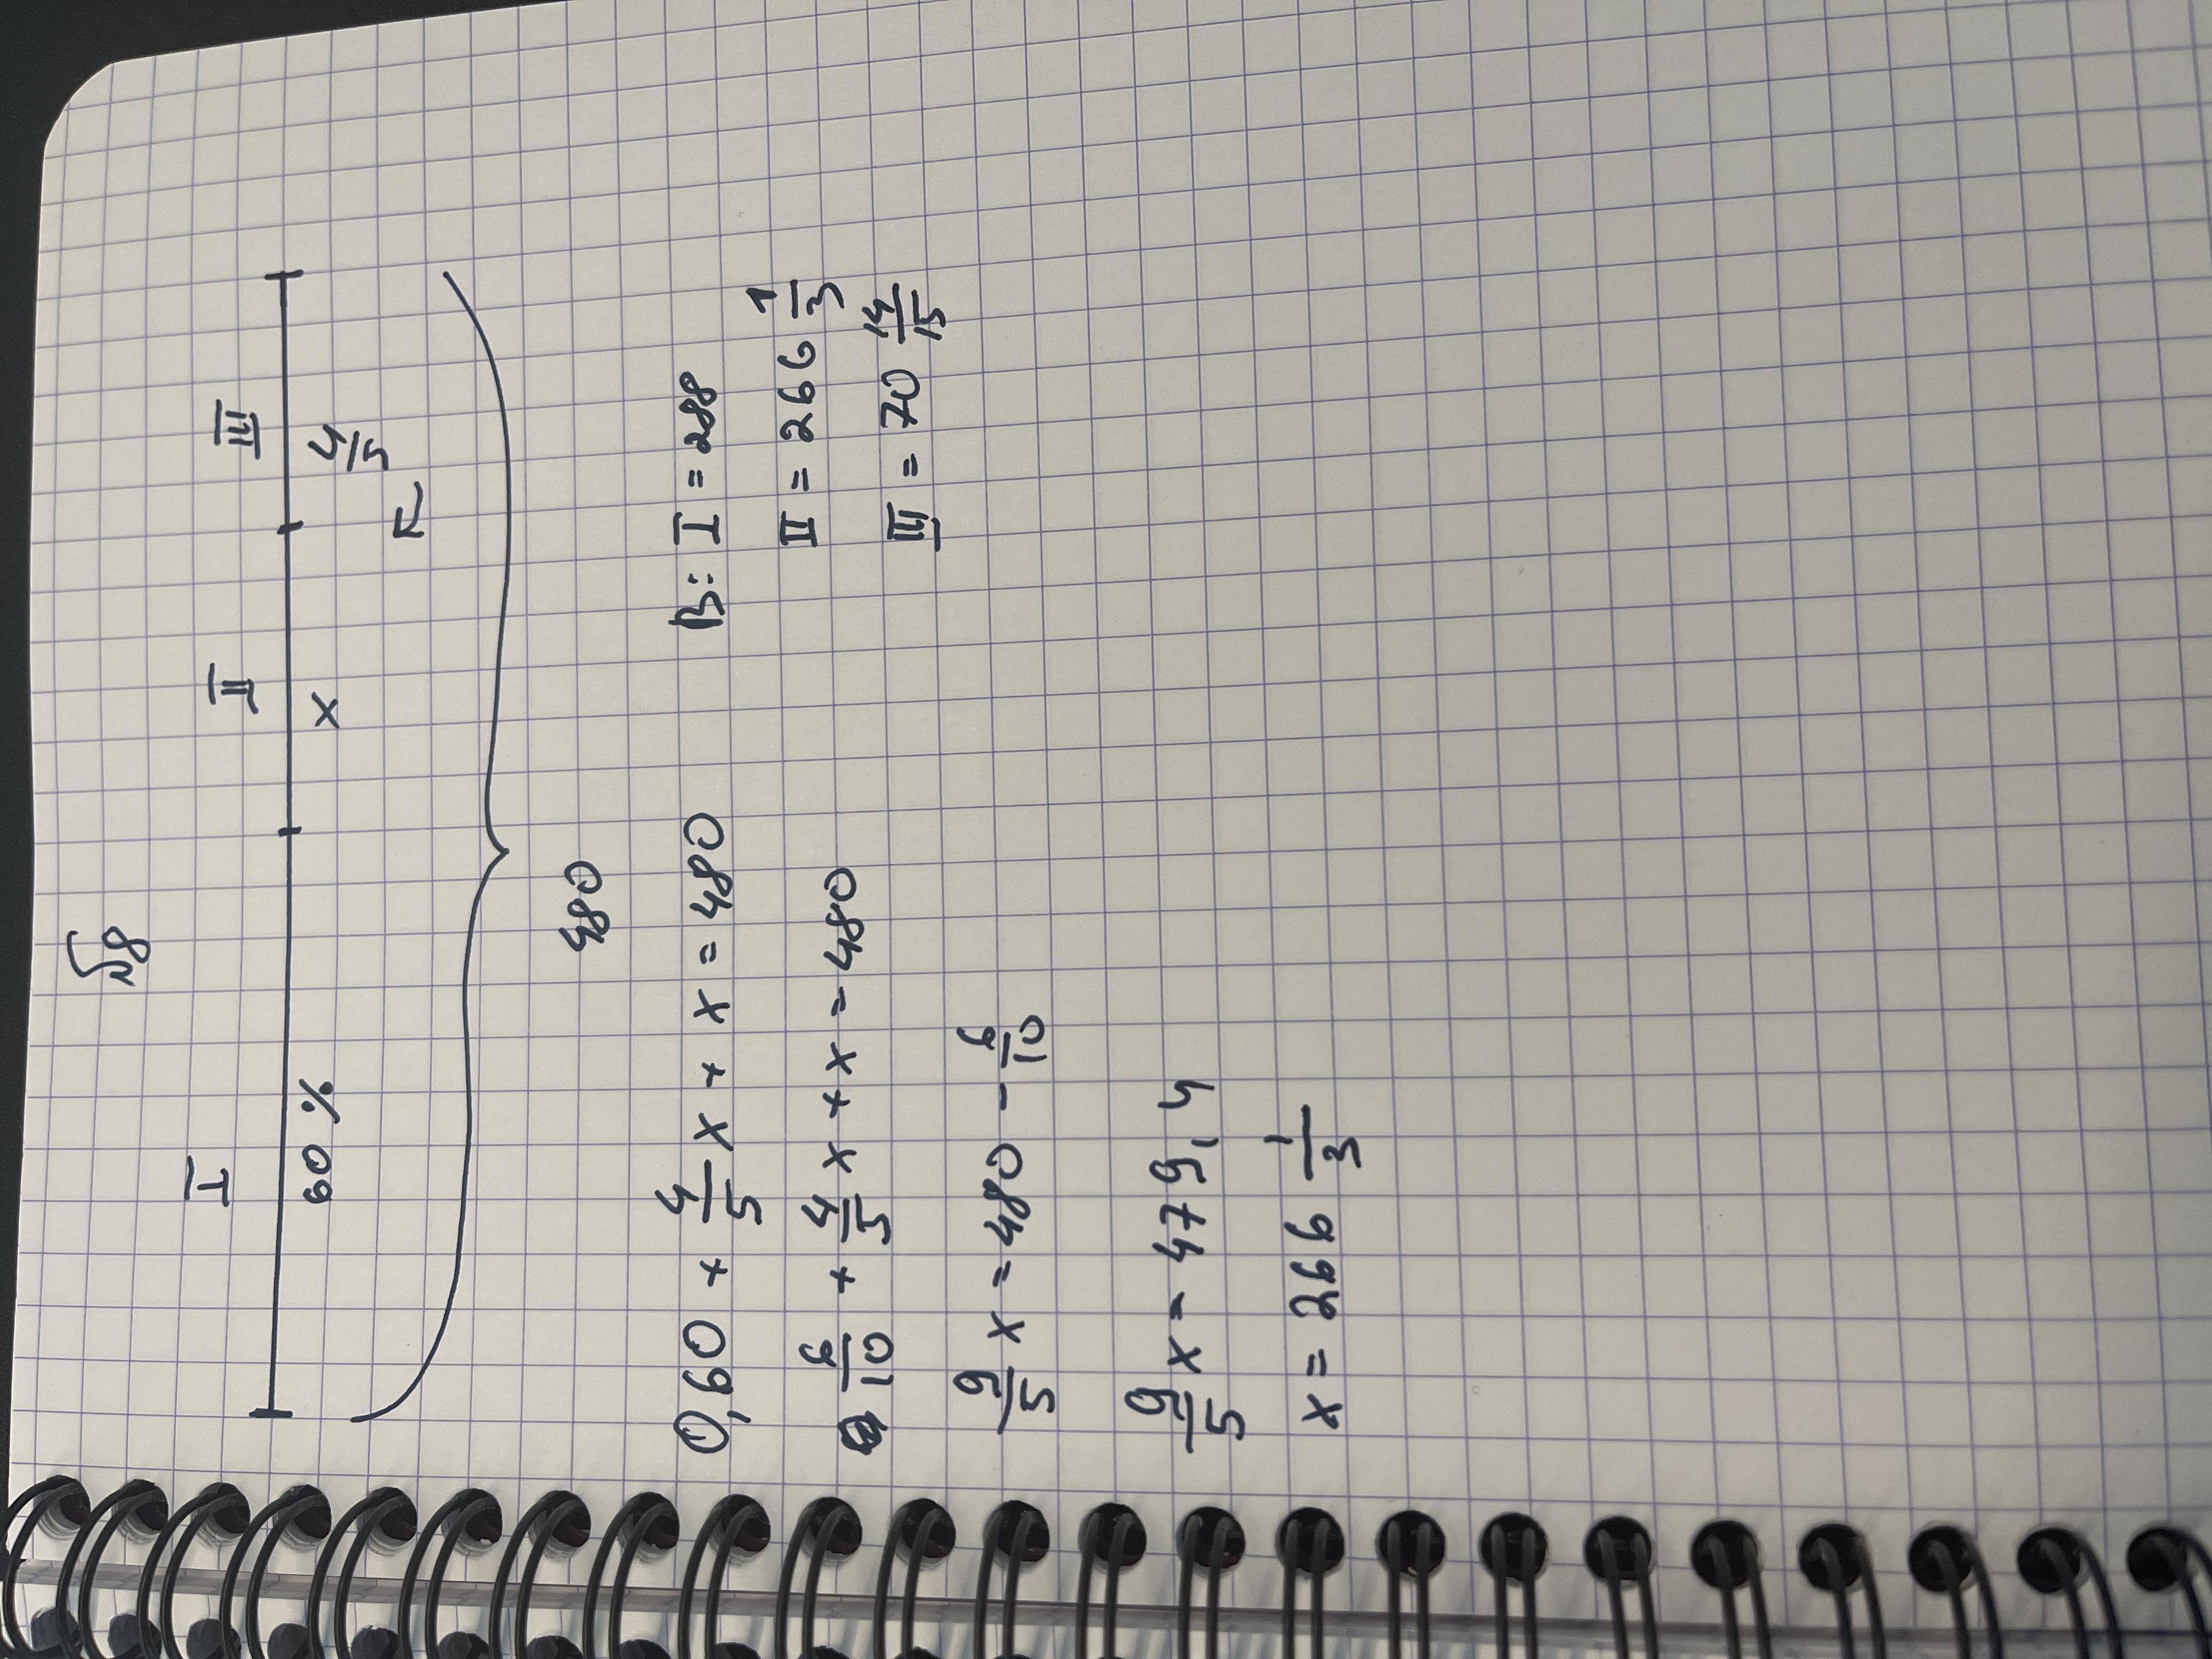 №8
I II III
60 % x 4/5
480
0,60 + 4/5 x + x = 480
6/10 + 4/5 x + x = 480
9/5 x = 480 - 6/10
9/5 x = 479,4
x = 266 1/3
В: I = 288
II = 266 1/3
III = 70 14/15